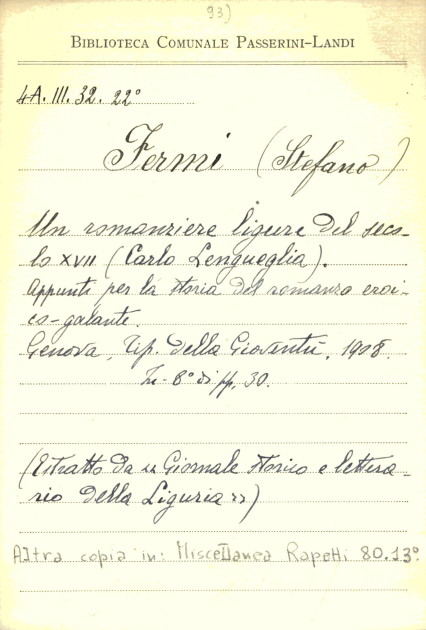 93)
BIBLIOTECA COMUNALE PASSERINI-LANDI
4A. III. 32. 22°
Fermi (Stefano)
Un romanziere ligure del seco-
lo XVII (Carlo Lengueglia).
Appunti per la storia del romanzo eroi-
co-galante.
Genova, Tip. della Gioventù, 1908.
In-8° di pp. 30.
(Estratto da "Giornale storico e lettera-
rio della Liguria")
Altra copia in: Miscellanea Rapetti 80.13°